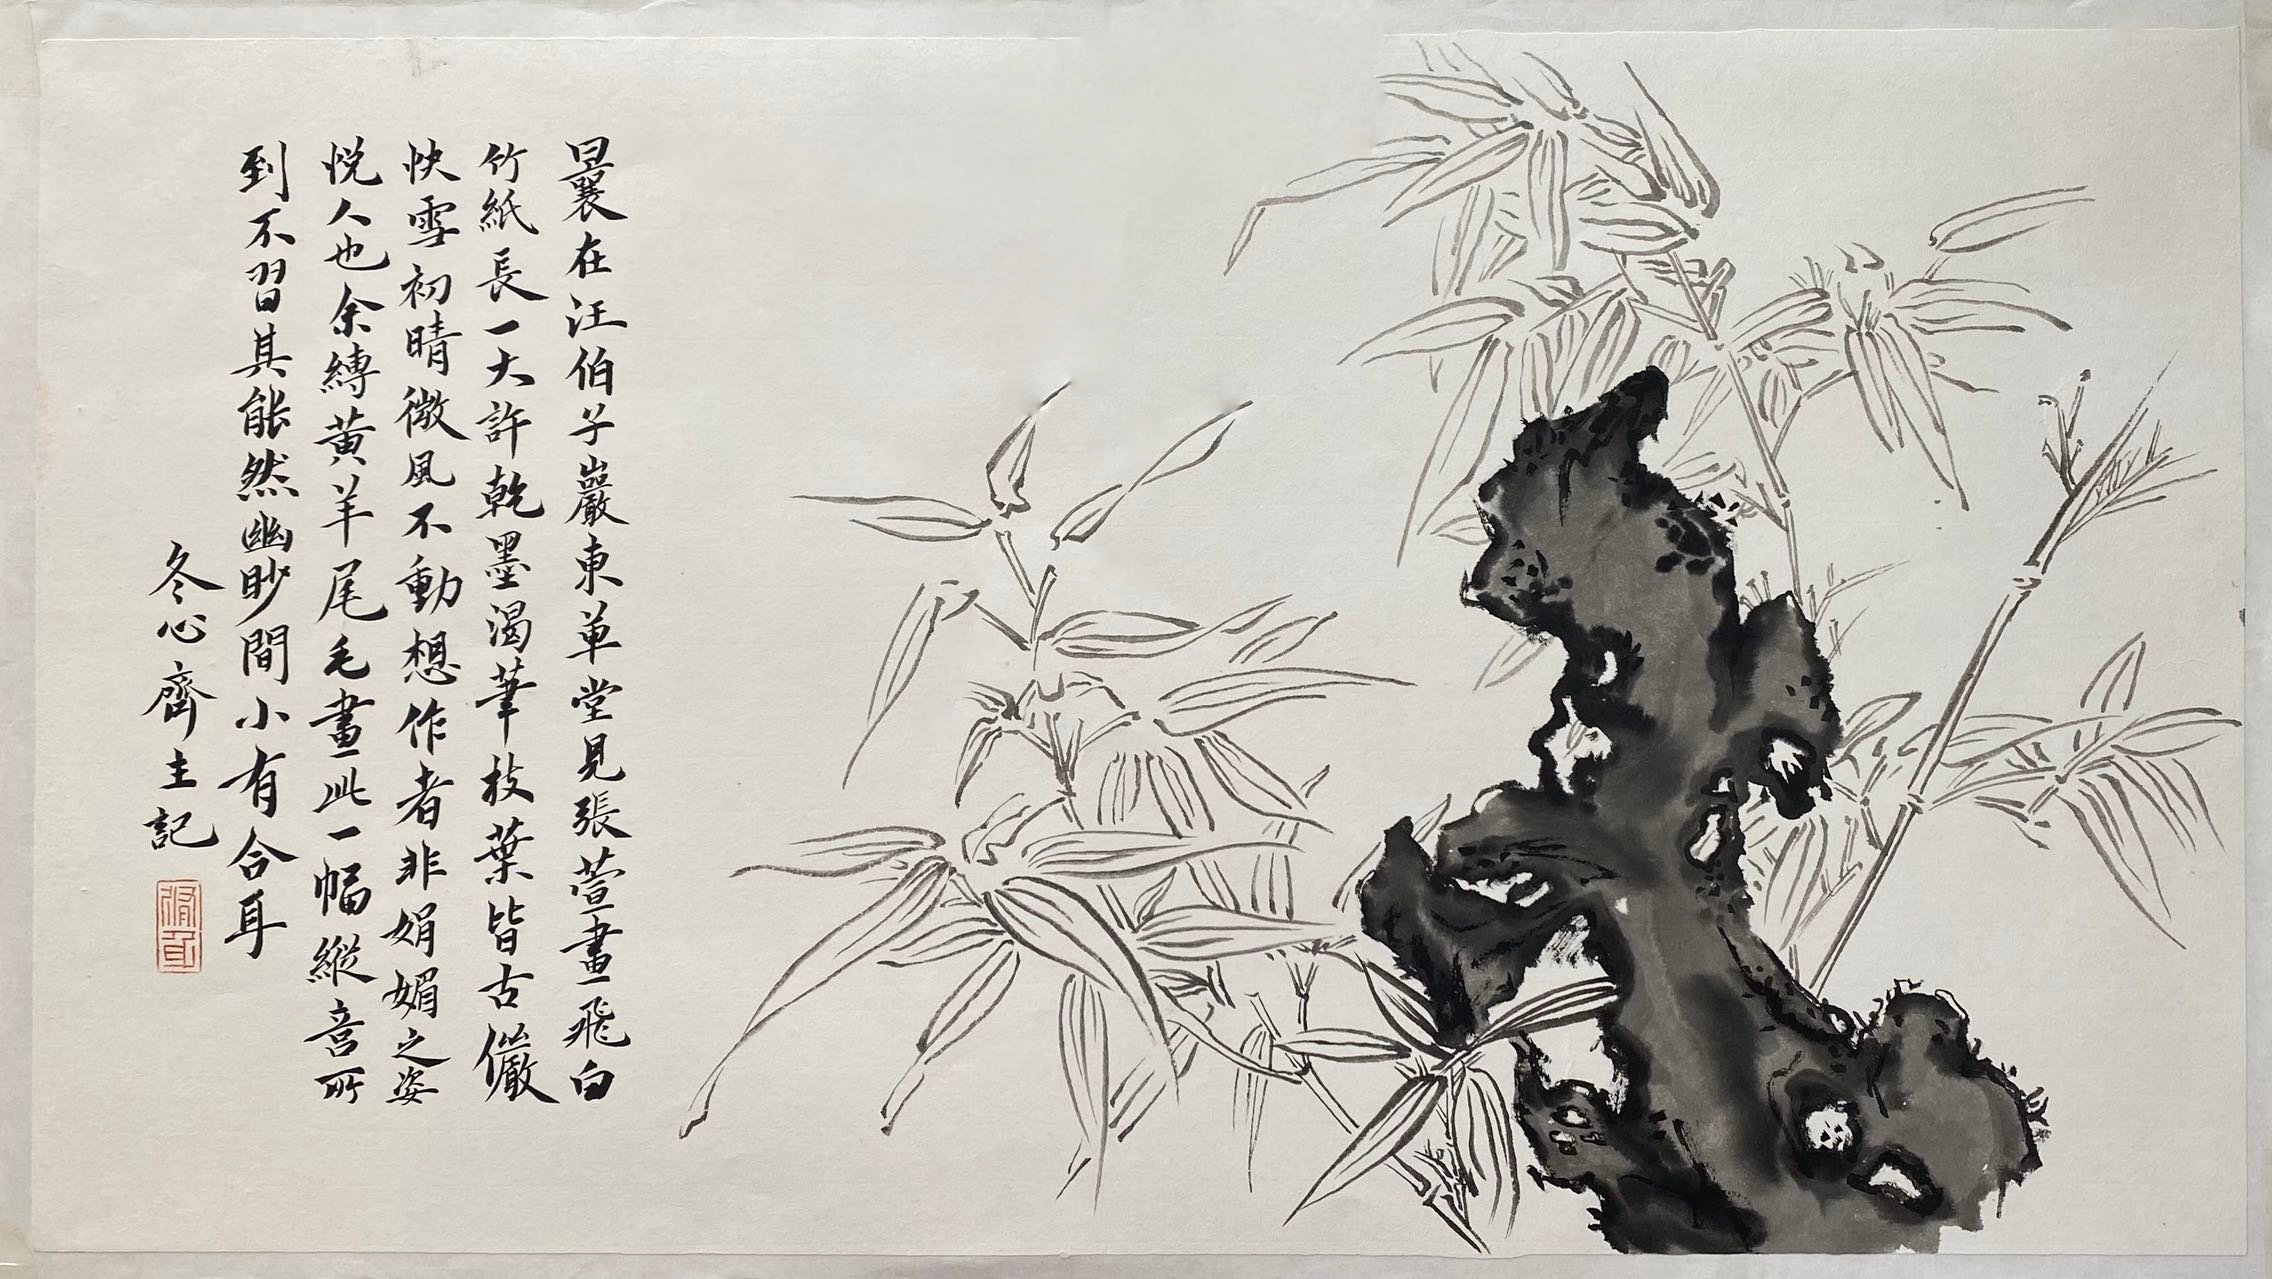 曩在汪伯子巖東草堂見張萱畫飛白
竹紙長一大許乾墨渴筆枝葉皆古儼
快雪初晴微風不動想作者非娟媚之姿
悅人也余縛黃羊尾毛畫此一幅縱意所
到不習其能然幽眇間小有合耳
冬心齋主記